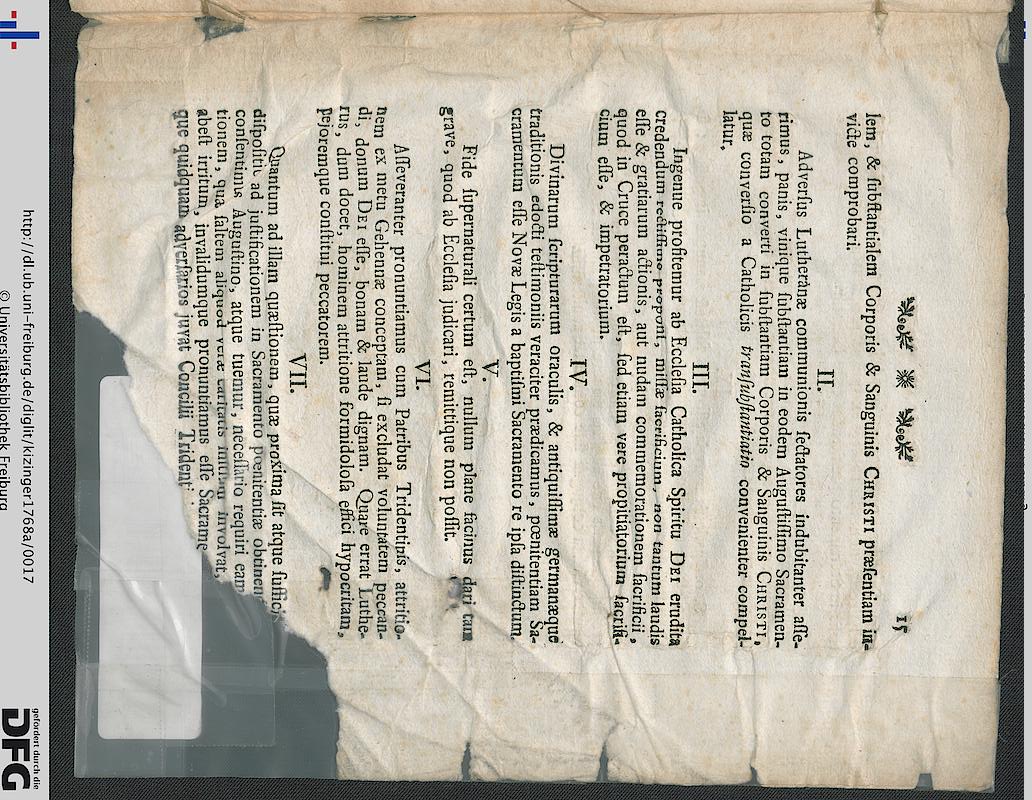 15
lem, & ſubſtantialem Corporis & Sanguinis CHRISTI præſentiam in-
victe comprobari.
II.
Adverſus Lutheranæ communionis ſectatores indubitanter aſſe-
rimus, panis, vinique ſubſtantiam in eodem Auguſtiſſimo Sacramen-
to totam converti in ſubſtantiam Corporis & Sanguinis CHRISTI,
quæ converſio a Catholicis tranſubſtantiatio convenienter compel-
latur.
III.
Ingenue profitemur ab Eccleſia Catholica Spiritu DEI erudita
credendum rectiſſime proponi, miſſæ ſacrificium, non tantum laudis
eſſe & gratiarum actionis, aut nudam commemorationem ſacrificii,
quod in Cruce peractum eſt, ſed etiam vere propitiatorium ſacrifi-
cium eſſe, & impetratorium.
IV.
Divinarum ſcripturarum oraculis, & antiquiſſimæ germanæque
traditionis edocti teſtimoniis veraciter prædicamus, pœnitentiam Sa-
cramentum eſſe Novæ Legis a baptiſmi Sacramento re ipſa diſtinctum.
V.
Fide ſupernaturali certum eſt, nullum plane facinus dari tam
grave, quod ab Eccleſia judicari, remittique non poſſit.
VI.
Aſſeveranter pronuntiamus cum Patribus Tridentinis, attritio-
nem ex metu Gehennæ conceptam, ſi excludat voluntatem peccan-
di, donum DEI eſſe, bonam & laude dignam. Quare errat Luthe-
rus, dum docet, hominem attritione formidoloſa effici hypocritam,
pejoremque conſtitui peccatorem.
VII.
Quantum ad illam quæſtionem, quæ proxima ſit atque ſuffici
diſpoſitio ad juſtificationem in Sacramento pœnitentiæ obtinen
conſentimus Auguſtino, atque tuemur, neceſſario requiri eam
tionem, qua ſaltem aliquod veræ caritatis initium involvat,
abeſt irritum, invalidumque pronuntiamus eſſe Sacrame
que quidquam adverſarios juvat Concilii Trident
http://dl.ub.uni-freiburg.de/diglit/kizinger1768a/0017
© Universitätsbibliothek Freiburg
gefördert durch die
DFG